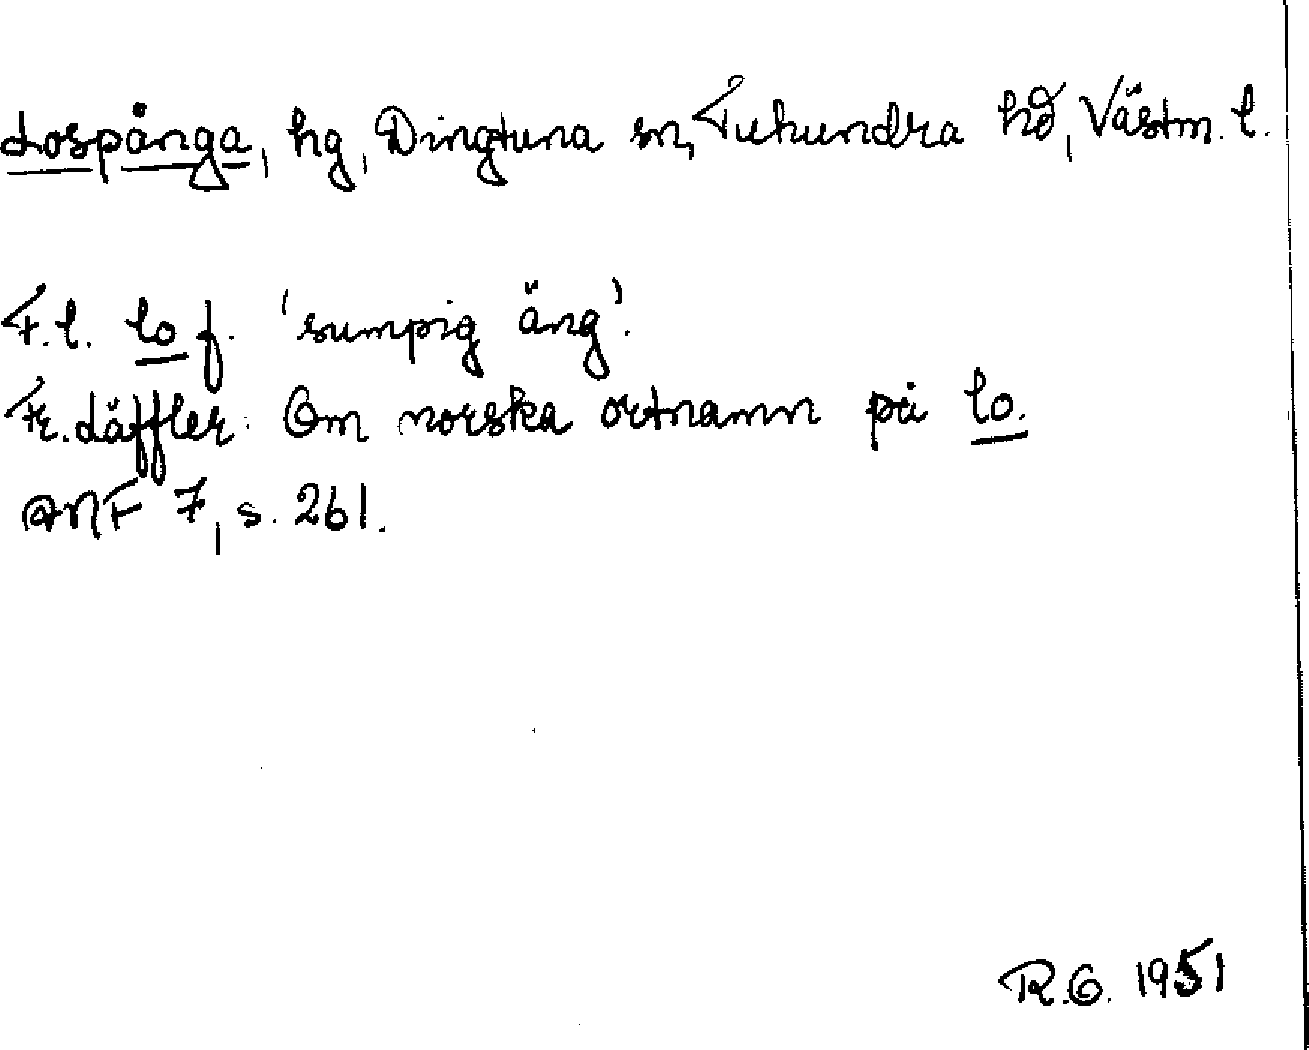 Lospånga, hg, Dingtuna sn, Tuhundra hd, Västm. l.
F.l. lo f. 'sumpig äng'.
Fr. Läffler: Om norska ortnamn på lo.
ANF 7, s. 261.
R.G. 1951